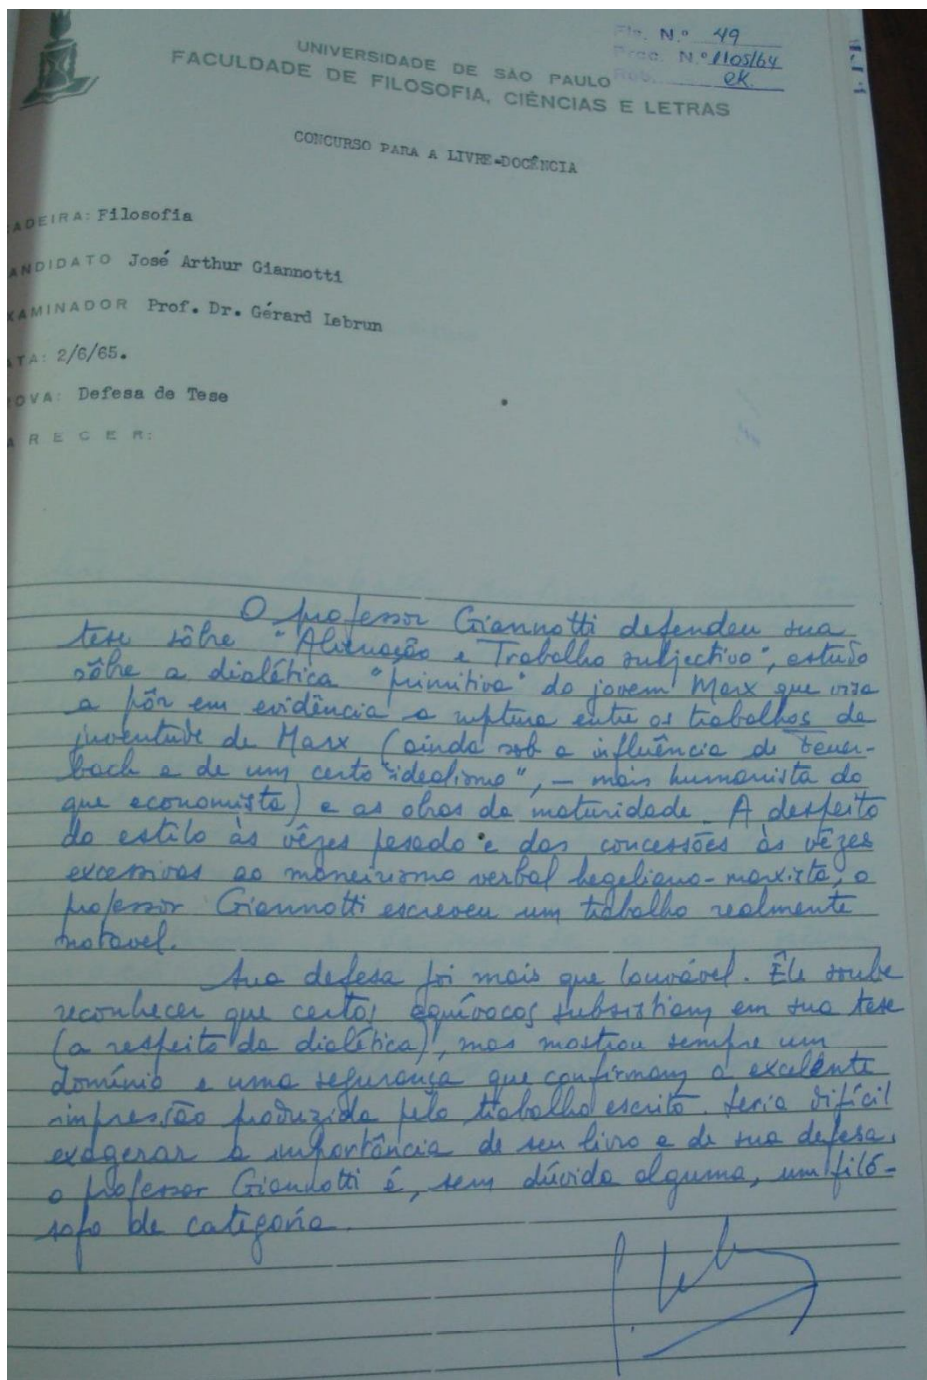 UNIVERSIDADE DE SÃO PAULO
FACULDADE DE FILOSOFIA, CIÊNCIAS E LETRAS
Fls. N.º 49
Proc. N.º 1105/64
Rub.
CONCURSO PARA A LIVRE-DOCÊNCIA
ADEIRA: Filosofia
ANDIDATO José Arthur Giannotti
XAMINADOR Prof. Dr. Gérard Lebrun
ATA: 2/6/65.
ROVA: Defesa de Tese
A R E C E R:
O professor Giannotti defendeu sua
tese sôbre "Alienação e Trabalho subjectivo", estudo
sôbre a dialética "primitiva" do jovem Marx que visa
a pôr em evidência a ruptura entre os trabalhos da
juventude de Marx (ainda sob a influência de Feuer-
bach e de um certo "idealismo", – mais humanista do
que economista) e as obras da maturidade. A despeito
do estilo às vêzes pesado e das concessões às vêzes
excessivas ao maneirismo verbal hegeliano-marxista, o
professor Giannotti escreveu um trabalho realmente
notavel.
Sua defesa foi mais que louvável. Êle soube
reconhecer que certos equívocos subsistiam em sua tese
(a respeito da dialética), mas mostrou sempre um
domínio e uma segurança que confirmam a excelente
impressão produzida pelo trabalho escrito. Seria difícil
exagerar a importância de seu livro e de sua defesa.
o professor Giannotti é, sem dúvida alguma, um filó-
sofo de categoria.